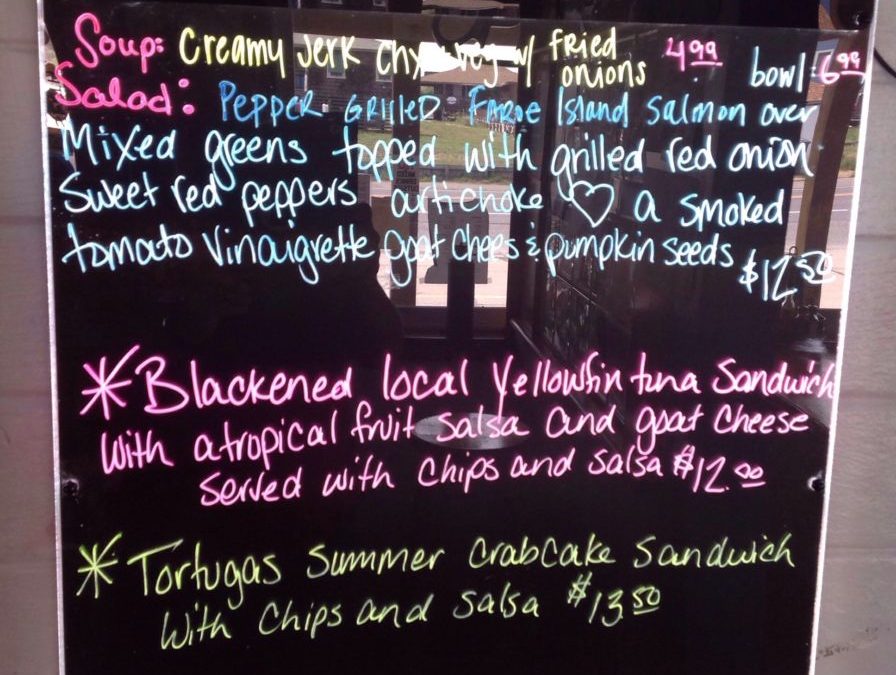 Soup: Creamy Jerk Chx veg w/ fried onions 4.99 bowl: 6.99
Salad: Pepper Grilled Faroe Island Salmon over
Mixed greens topped with grilled red onion
Sweet red peppers artichoke ♡ a smoked
tomato vinaigrette goat chees & pumpkin seeds
$12.50
*Blackened local Yellowfin tuna Sandwich
with a tropical fruit salsa and goat cheese
served with chips and salsa $12.00
*Tortugas Summer Crabcake Sandwich
with Chips and salsa $13.50